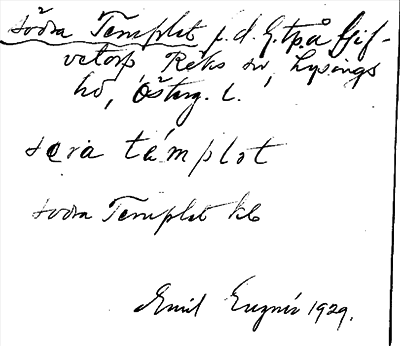 södra Templet f. d. G. tp. å Gis-
vetorp Reks sn, Lysings
hd, Österg. L.
sœra támplot
södra Templet kb
Emil 1929.